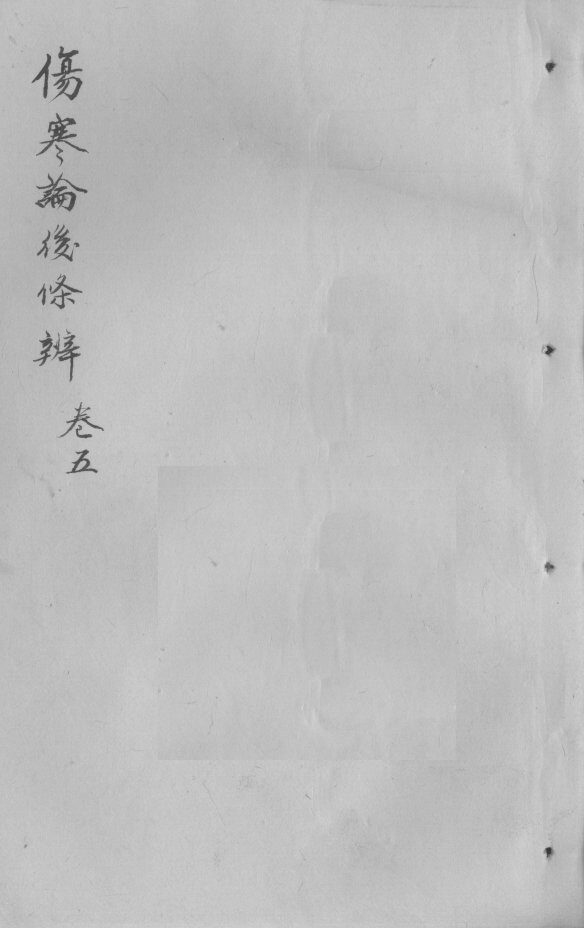 傷寒論後條辨
卷五